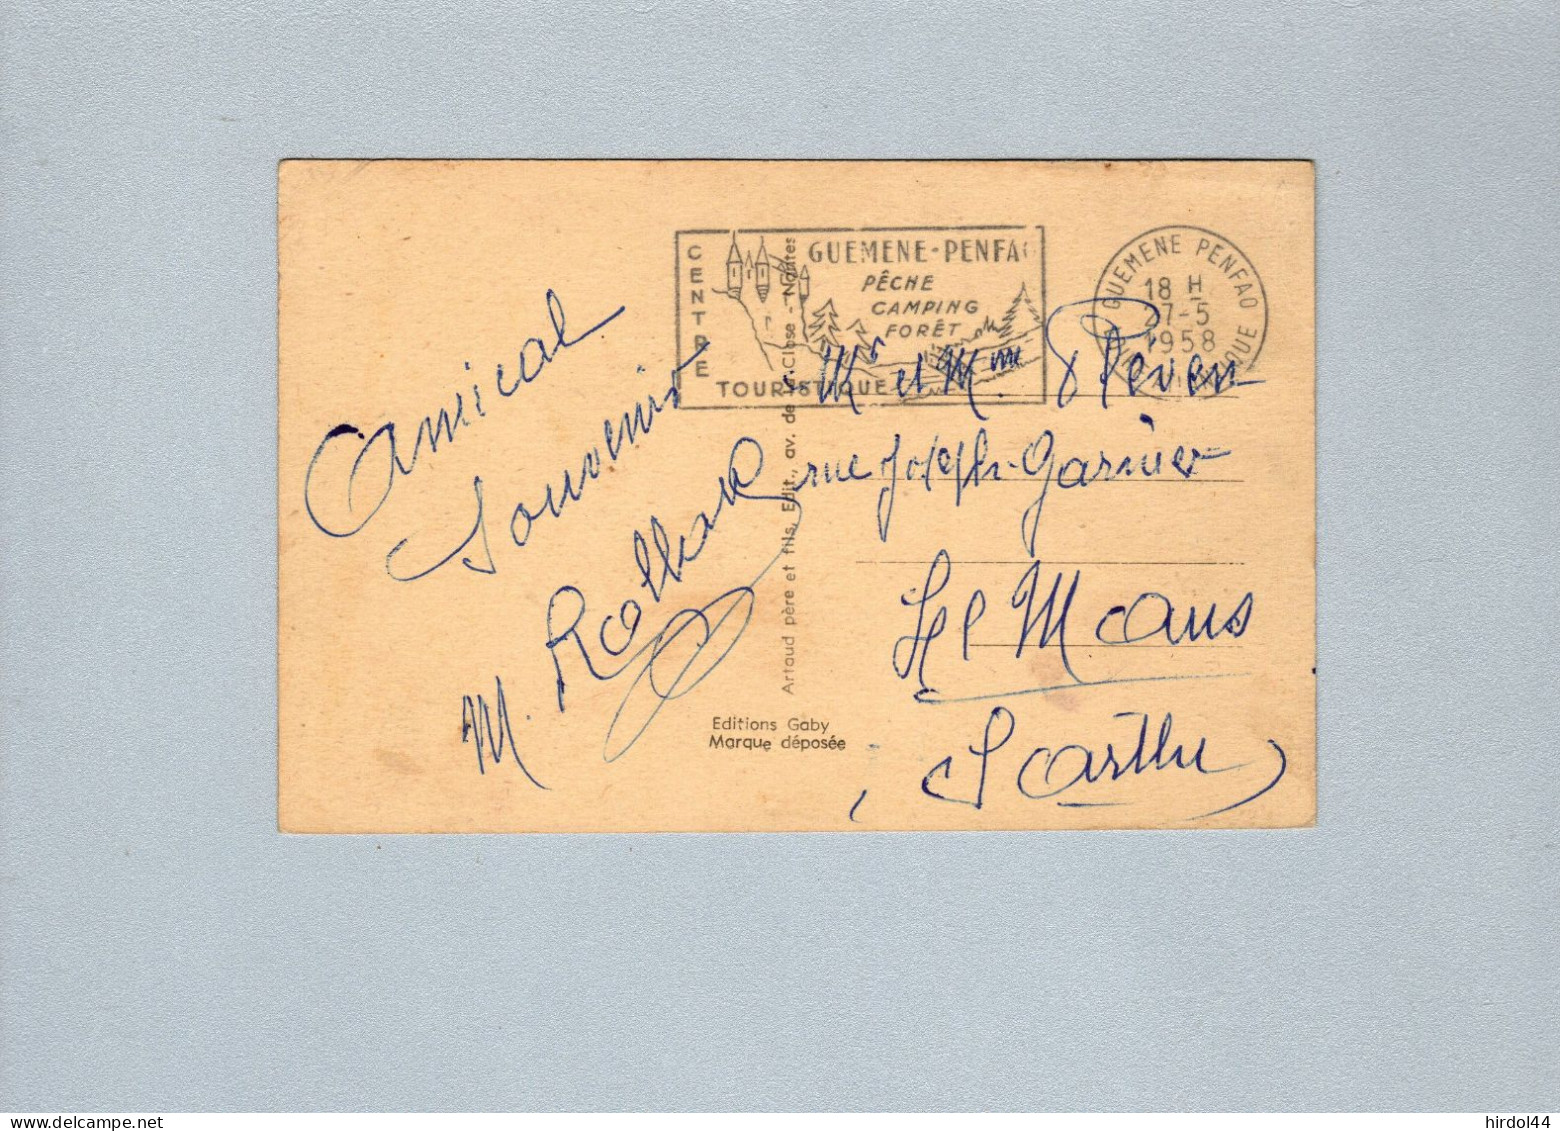 CENTRE
GUEMENE-PENFAO
PÊCHE
CAMPING
FORÊT
TOURISTIQUE
GUEMENE PENFAO
18 H
27-5
1958
Amical
Souvenir
M.
Mr et Mme
rue Joseph Garnier
Le Mans
Sarthe
Artaud père et fils, Edit., av. de la Close - Nantes
Editions Gaby
Marque déposée
hirdol44